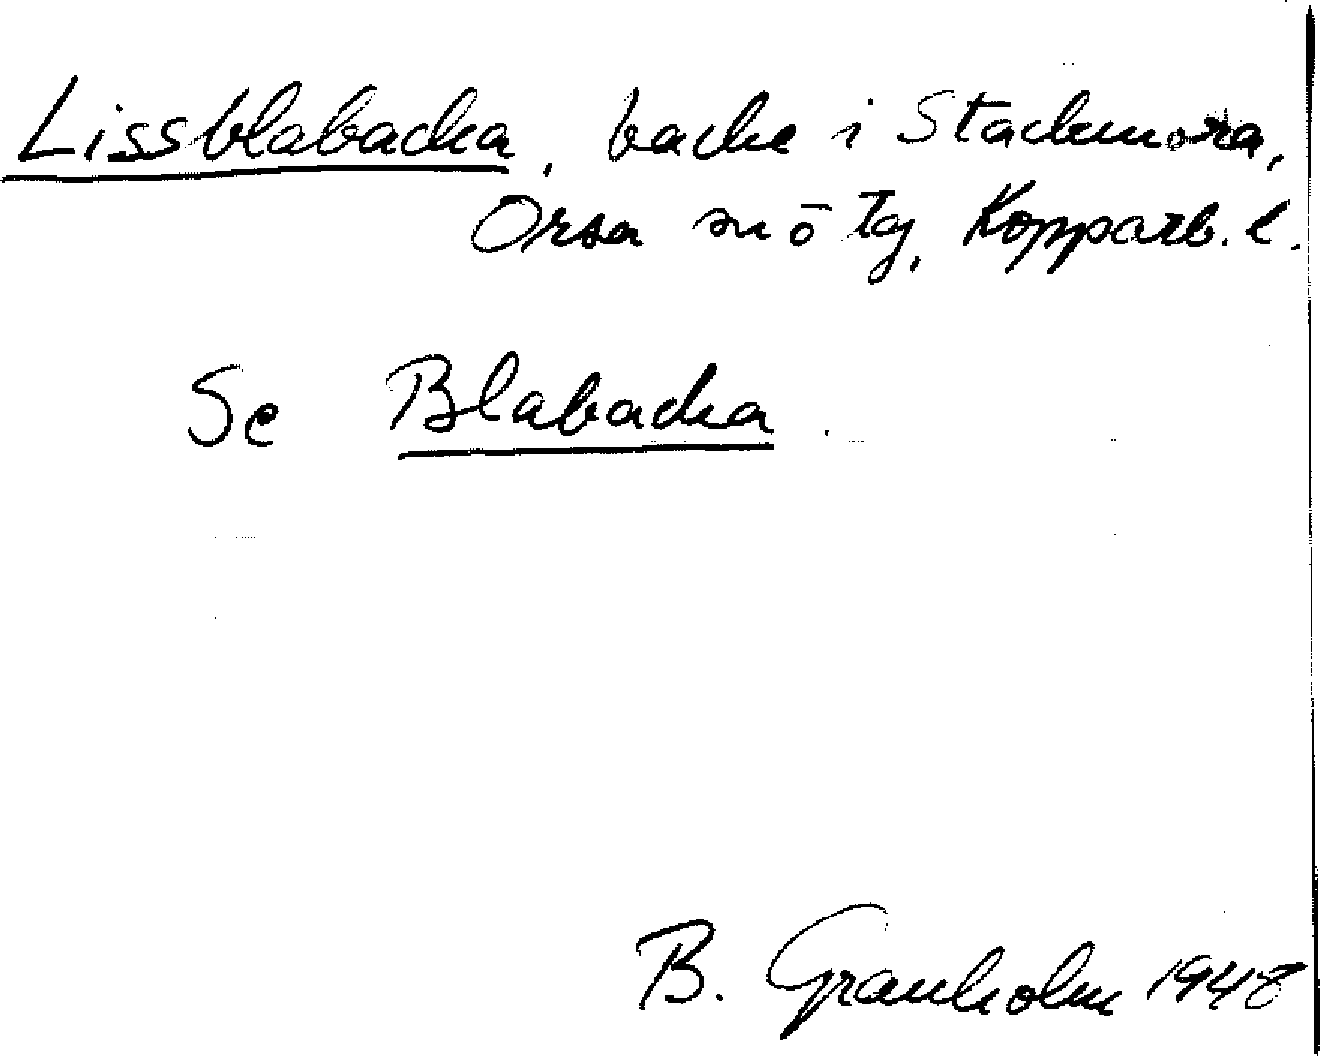 Lissblabacka, backe i Stackmora,
Orsa sn ō tg, Kopparb. l.
Se Blabacka.
B. Granholm 1948